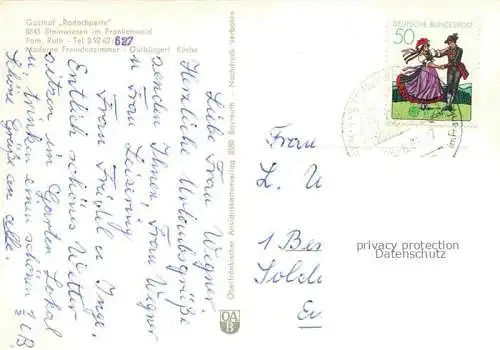 Gasthof „Rodachperle"
8641 Steinwiesen im Frankenwald
Fam. Roth - Tel 0 92 62/627
Moderne Fremdenzimmer - Gutbürgert Küche
Liebe Frau Wegner.
Herzliche Urlaubsgrüße
senden Ihnen, Frau Wegner
u. Frau Leising
Frau Friedl u. Inge.
Endlich schönes Wetter
sitzen im Garten Lokal
u. trinken einen schönen
Schöne Grüße an alle.
Oberfränkischer Ansichtskartenverlag 8580 Bayreuth - Nachdruck verboten
OA
B
DEUTSCHE BUNDESPOST
50
Frau
L. W
1 Be
privacy protection
Datenschutz